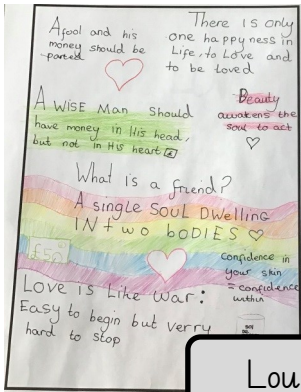 A fool and his
money should be
parted
There is only
one happyness in
Life, to Love and
to be loved
A WISE MAN Should
have money in His head,
but not in His heart
Beauty
awakens the
soul to act
What is a friend?
A single SOUL DWELLING
IN two bODIES
£50
Confidence in
your skin
= confidence
within
LOVE IS LIKE WAR:
EASY to begin but verry
hard to stop
Lou